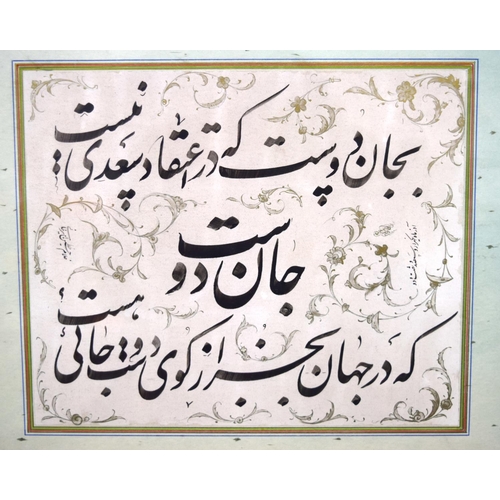 بجان دوست که در اعتقاد سعدی نیست
جان دوست
که در جهان بجز از کوی دوست جائی هست